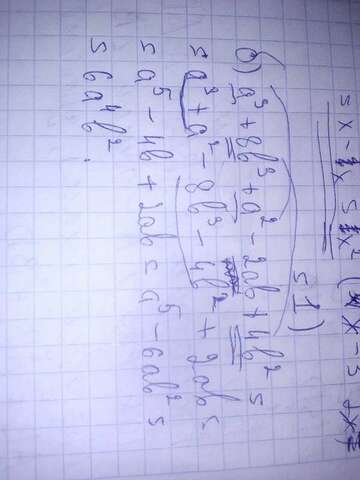 = 1)
б) a³ + 8b³ + a² - 2ab + 4b² =
= a³ + a² - 8b³ - 4b² + 2ab =
= a⁵ - 4b + 2ab = a⁵ - 6ab² =
= 6a⁴b².